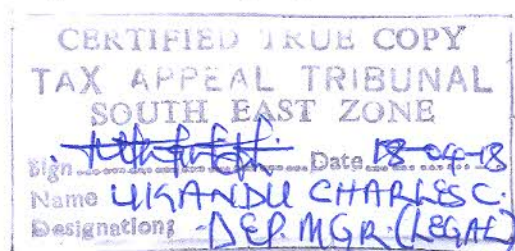 CERTIFIED TRUE COPY
TAX APPEAL TRIBUNAL
SOUTH EAST ZONE
Sign................Date 18-04-18
Name UKANDU CHARLES C.
Designation: DEP. MGR. (LEGAL)